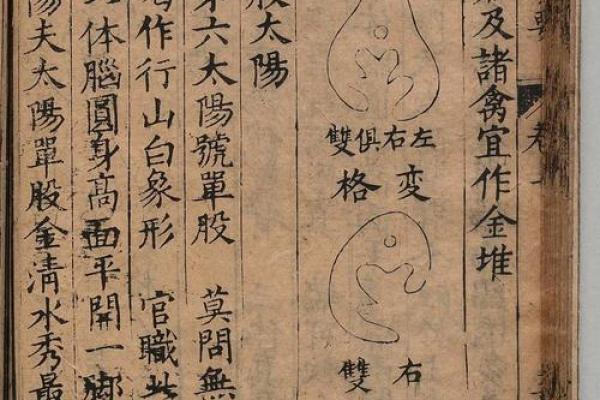 及諸禽宜作金堆
左右俱雙
変格
右雙
股太陽
六太陽號單股　莫問無
作行山白象形　官職
体腦圓身高面平開一
陽夫太陽單股金清水秀最